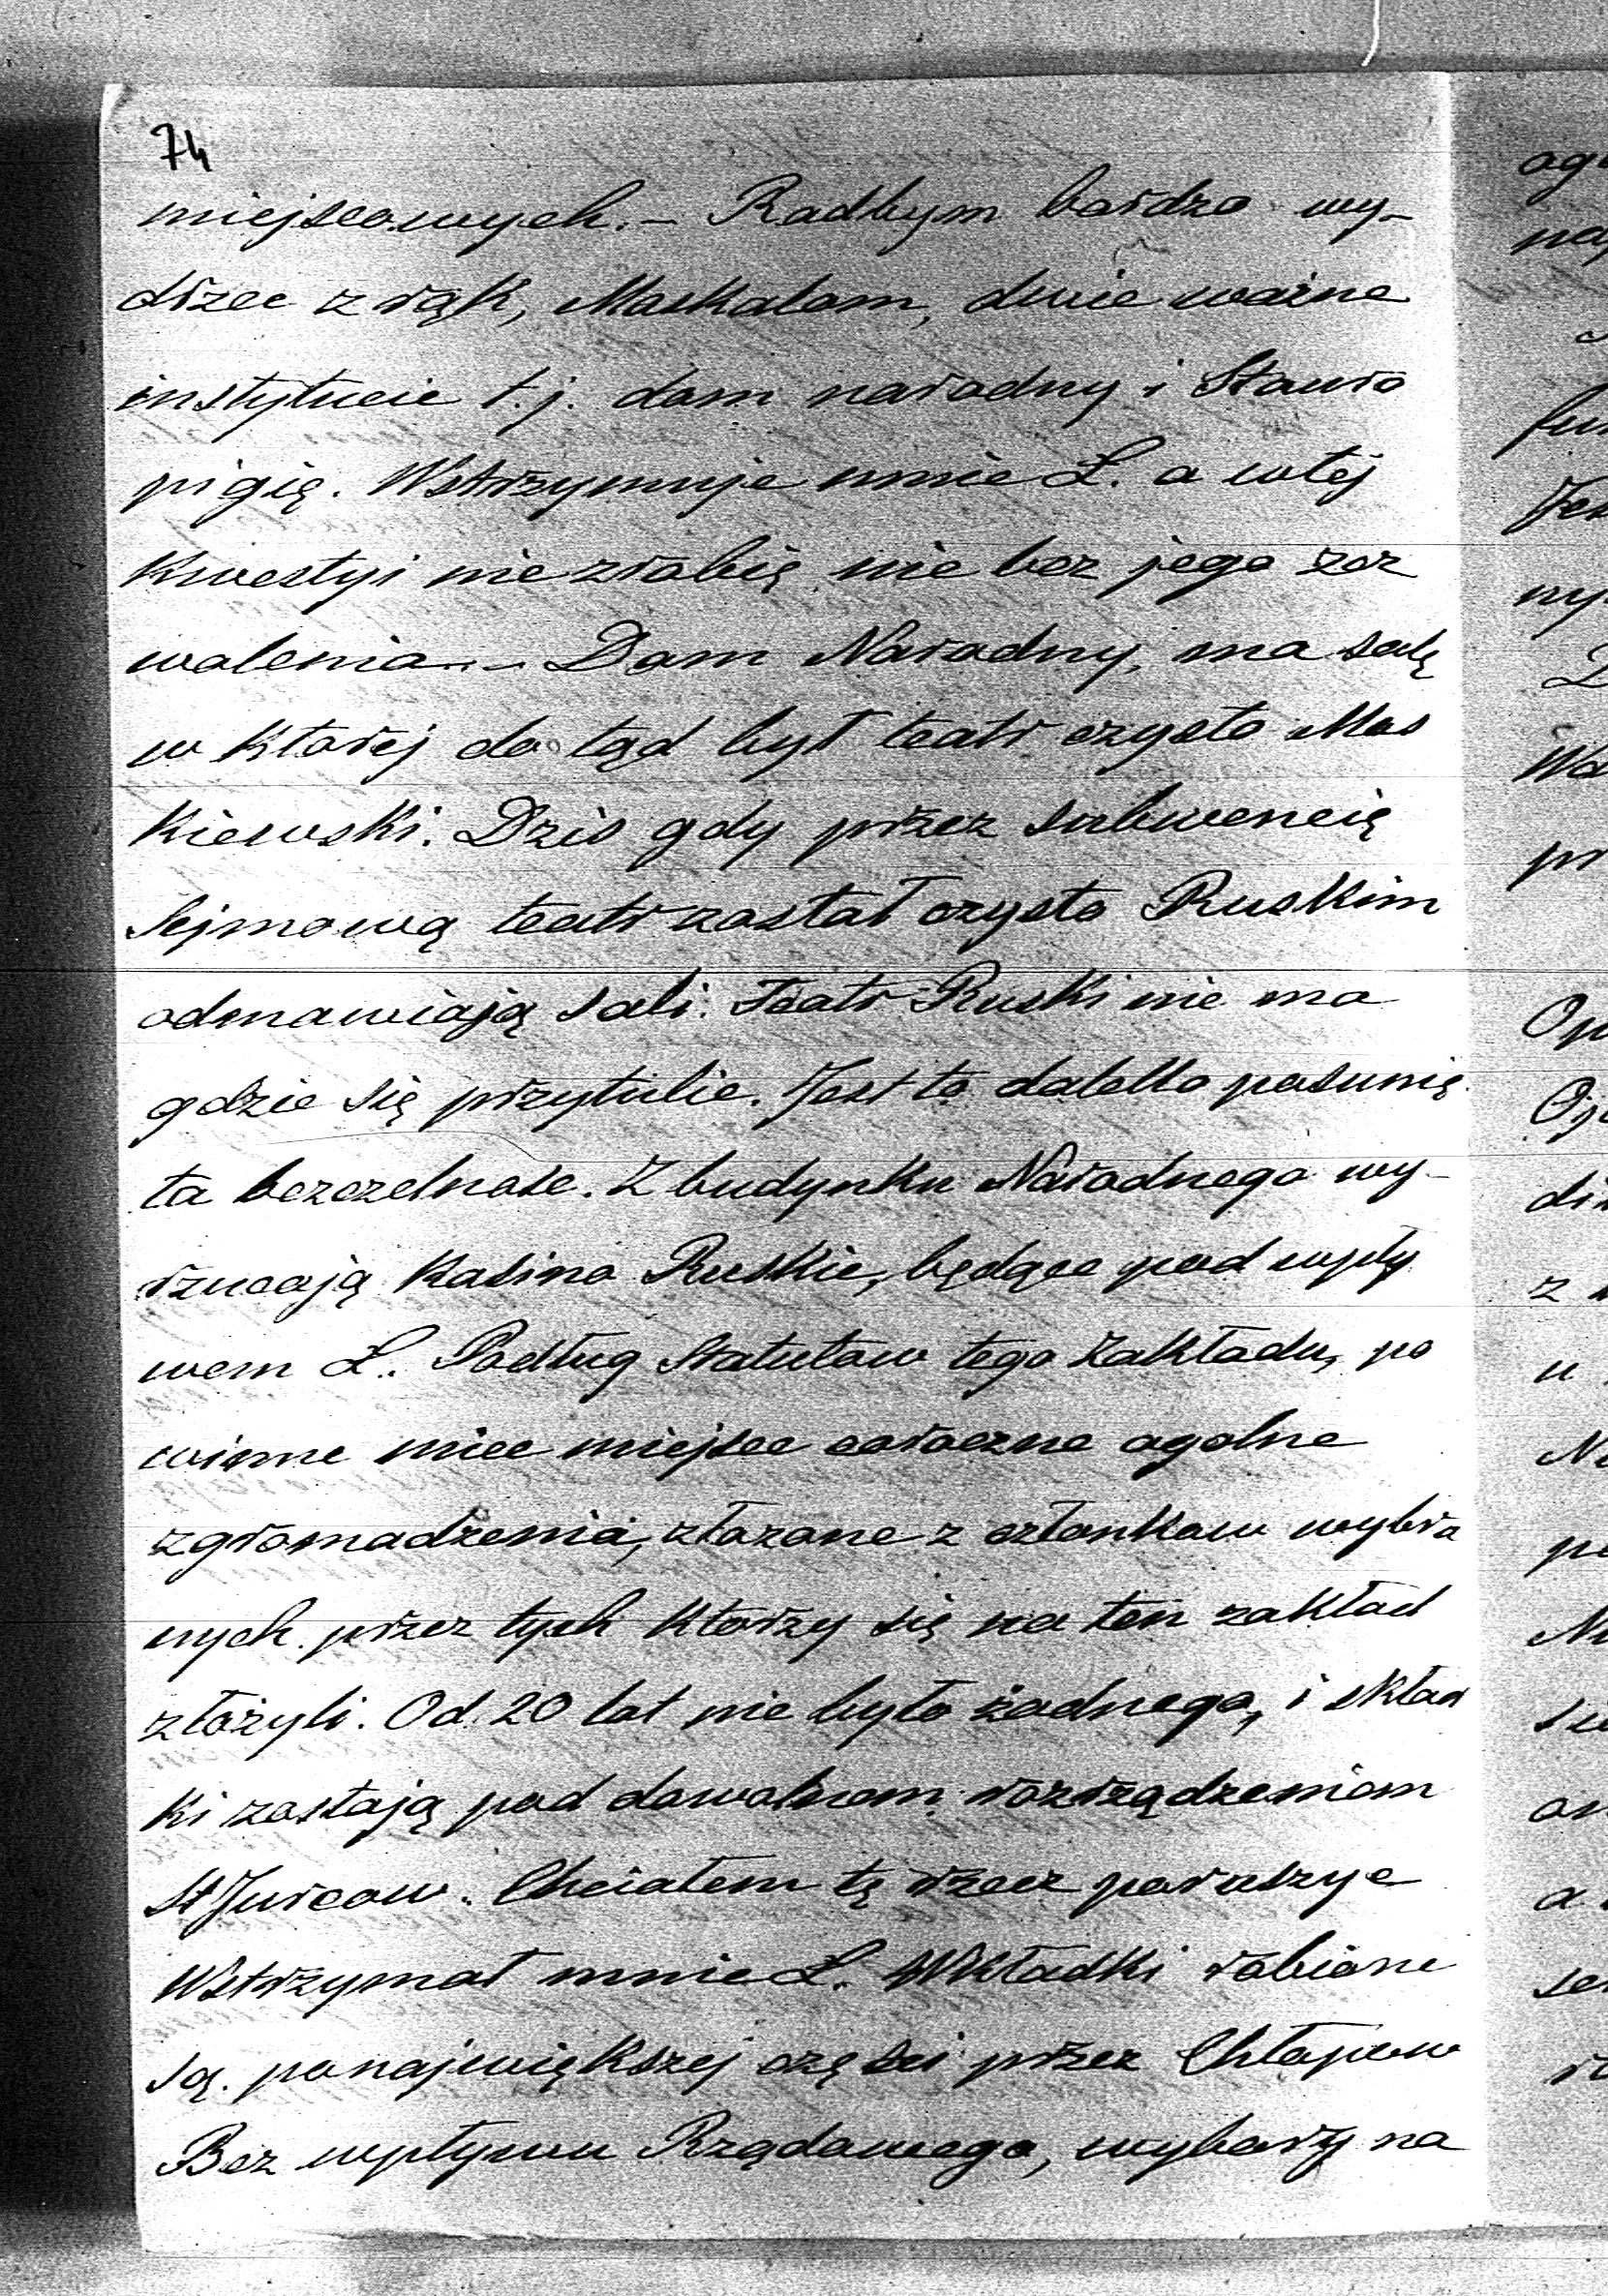 74
miejscowych. – Radbym bardzo wy-
drzec z rąk, Moskalom, dwie ważne
instytucie t. j. dom narodny i Stauro
pigię. Wstrzymuje mnie Ł. a w tej
Kwestyi nie zrobię nic bez jego zez
wolenia. – Dom Narodny, ma salę
w Ktorej do tąd był teatr czysto Mos
Kiewski. Dzis gdy przez subwencię
Sejmową teatr został czysto Ruskim
odmawiają sali. Teatr Ruski nie ma
gdzie się przytulic. Jest to daleko posunię
ta bezczelnosc. Z budynku Narodnego wy-
rzucają Kasino Ruskie, będące pod wpły
wem Ł. Podług Statutow tego Zakładu, po
winne miec miejsce coroczne ogolne
zgromadzenia, złozone z członkow wybra
nych przez tych Ktorzy się na ten zakład
złożyli. Od 20 lat nie było żadnego, i skład
Ki zostają pod dowolnem rozrządzeniom
St Jurcow. Chciałem tę rzecz poruszyc
Wstrzymał mnie Ł. Wkładki robione
są. po największej częsci przez Chłopow
Bez wpływu Rządowego, wybory na
ogo
Fes
wy
pr
Op
di
z
u
po
a